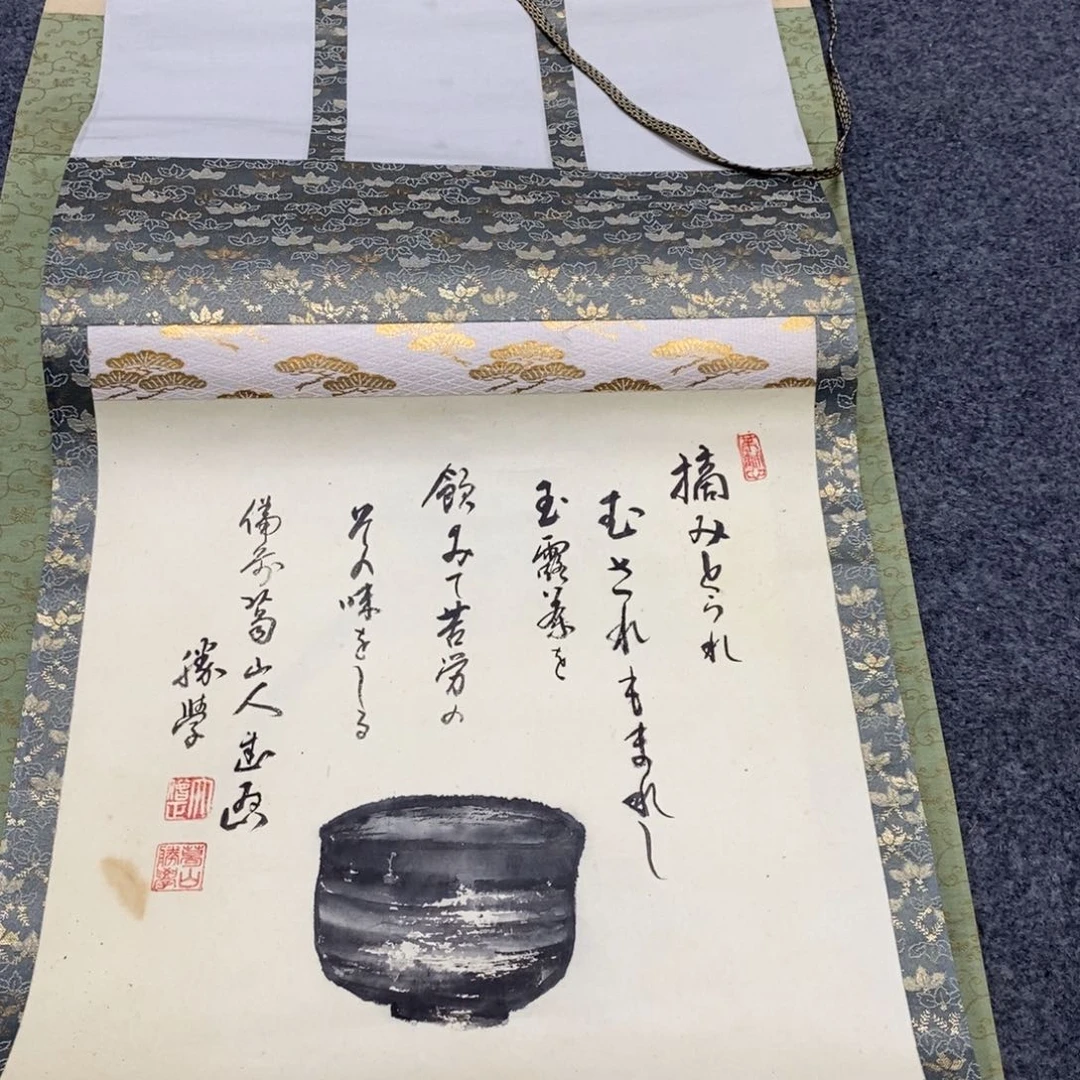 摘みとられ
むされもまれし
玉露茶を
飲みて苦労の
その味をしる
備前 山人
勝學
大僧正
山勝學